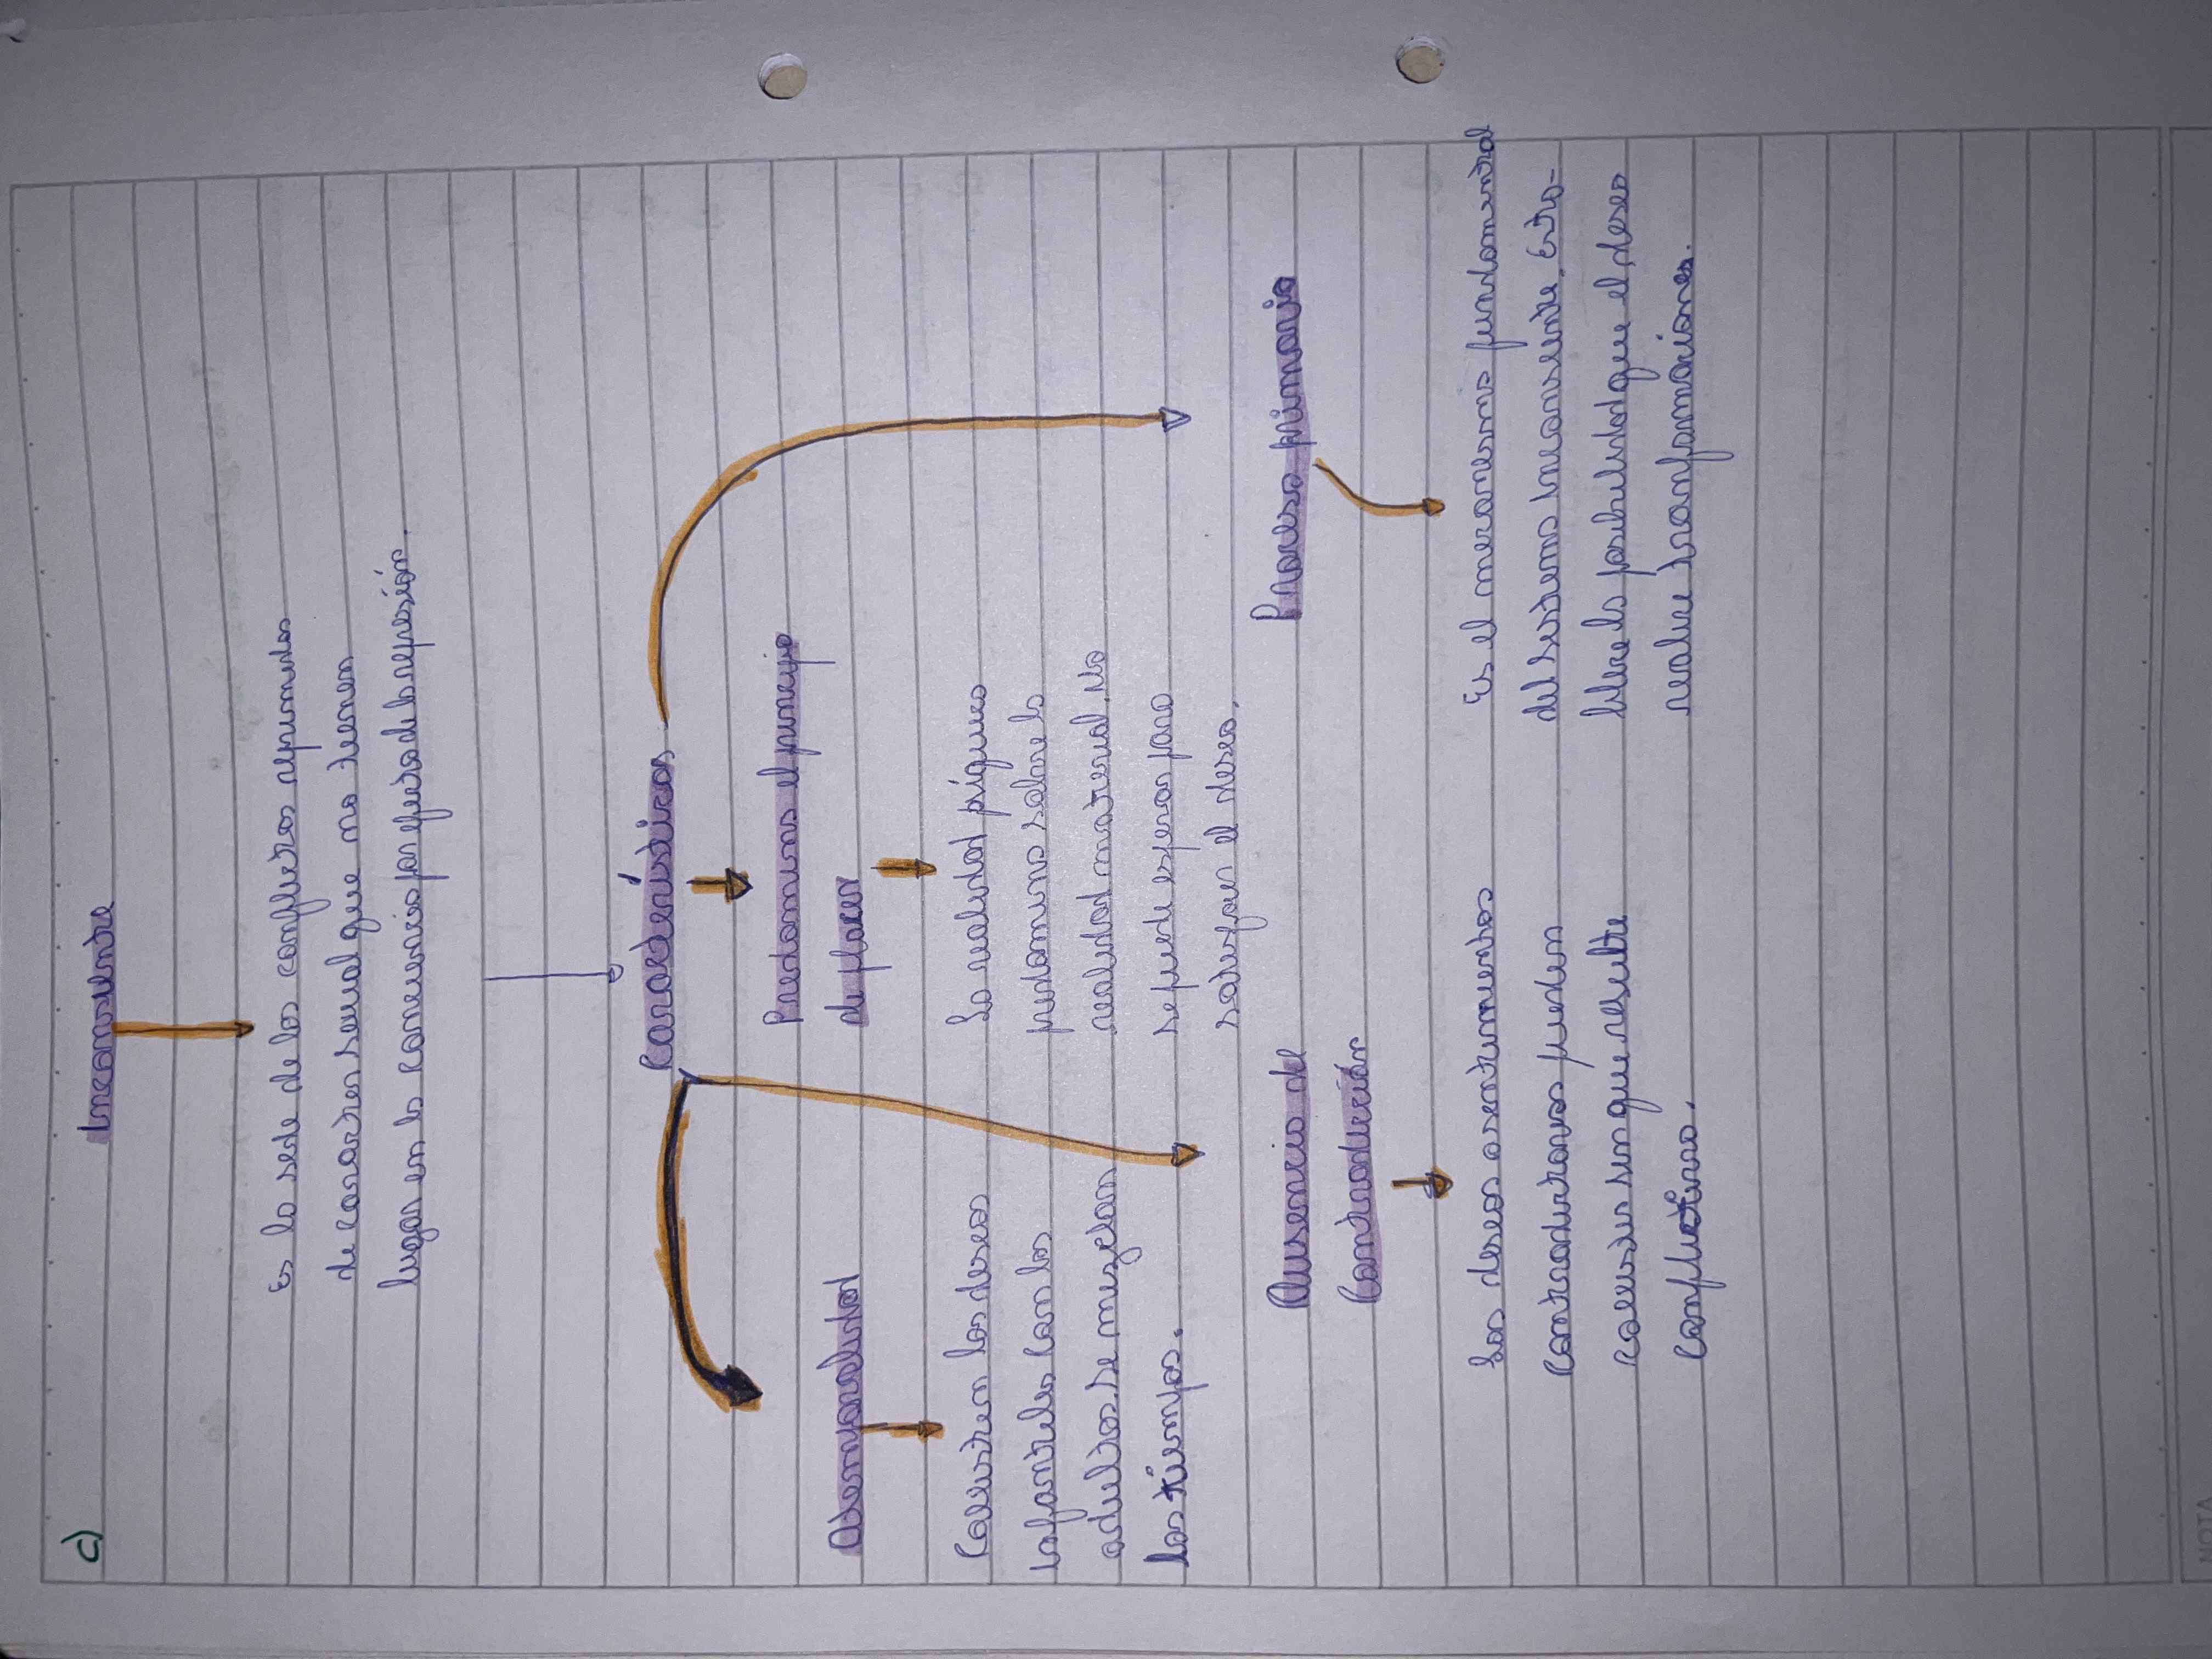 c)
Inconsciente
Es la sede de los conflictos reprimidos
de caracter sexual que no tienen
lugar en la conciencia por efecto de la represión.
Características
Predomina el principio
de placer
La realidad psíquica
predomina sobre la
realidad material. No
se puede esperar para
satisfacer el deseo.
Atemporalidad
Coexisten los deseos
infantiles con los
adultos. Se mezclan
los tiempos.
Proceso primario
Es el mecanismo fundamental
del sistema inconsciente. Esta-
blece la posibilidad que el deseo
realice transformaciones.
Ausencia de
Contradicción
Los deseos o sentimientos
contradictorios pueden
coexistir sin que resulte
conflictivo.
NOTA